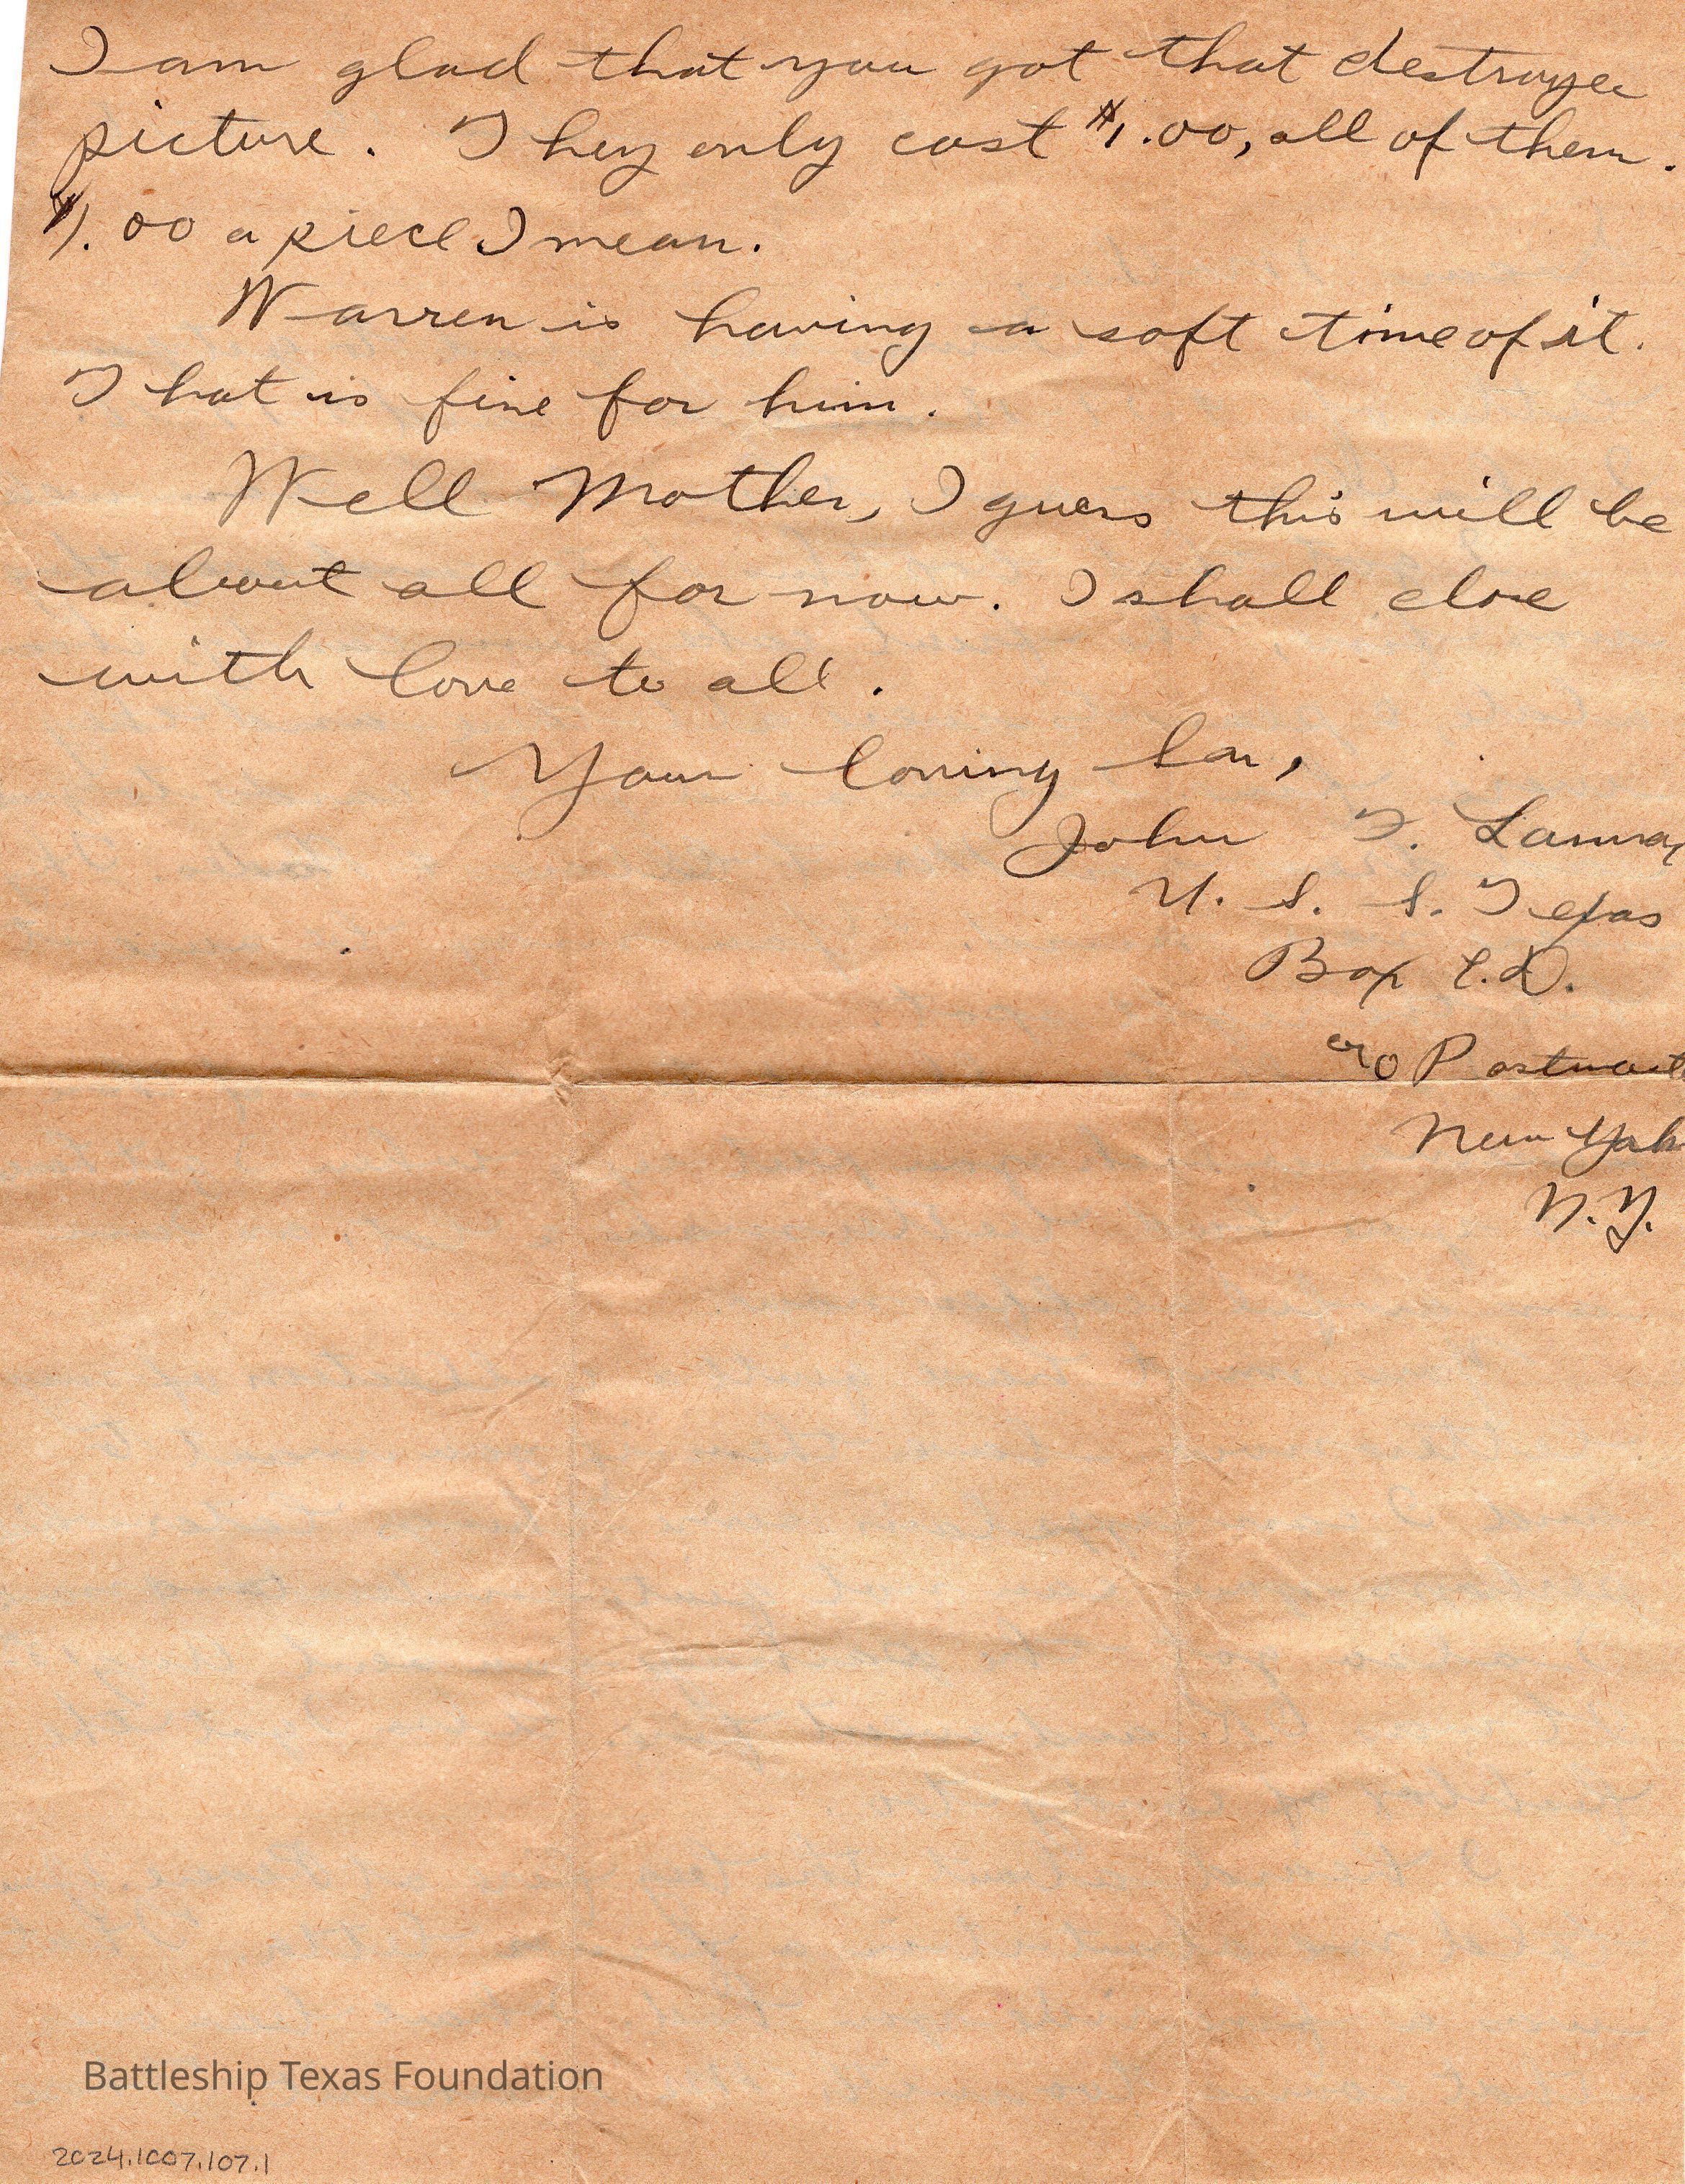 I am glad that you got that destroyer
picture. They only cost $1.00, all of them.
$1.00 a piece I mean.
Warren is having a soft time of it.
That is fine for him.
Well Mother, I guess this will be
about all for now. I shall close
with love to all.
Your loving son,
John T.
U. S. S. Texas
Box
c/o Postmaste
New York
N.Y.
Battleship Texas Foundation
2024.1007.107.1